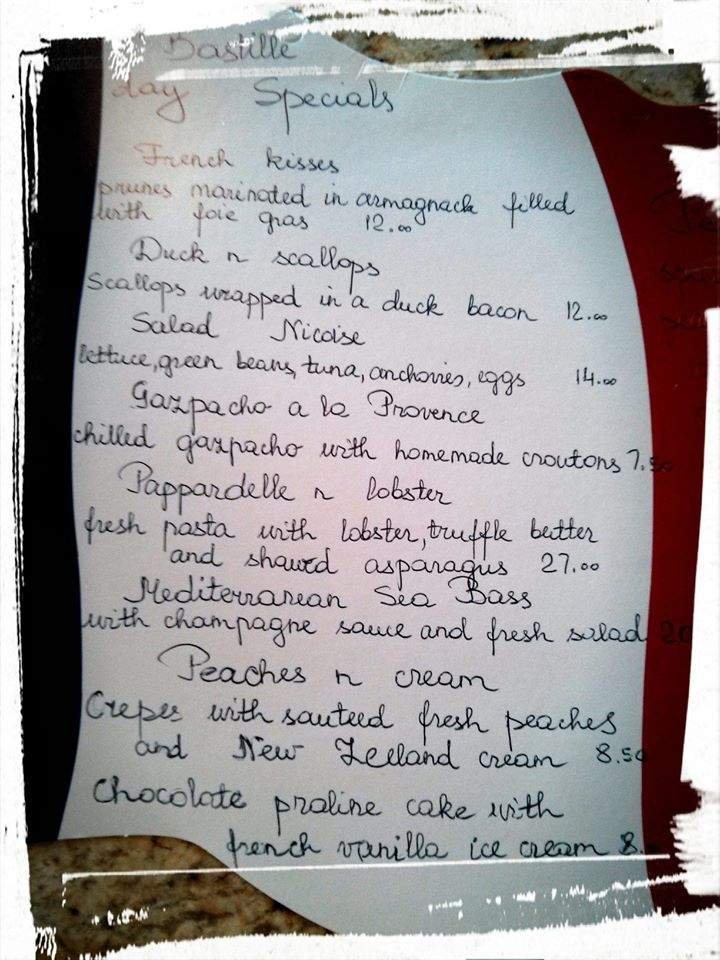 Bastille
day Specials
French kisses
prunes marinated in armagnack filled
with foie gras 12.00
Duck n scallops
Scallops wrapped in a duck bacon 12.00
Salad Nicoise
lettuce, green beans, tuna, anchovies, eggs 14.00
Gazpacho a la Provence
chilled gazpacho with homemade croutons 7.50
Pappardelle n lobster
fresh pasta with lobster, truffle butter
and shaved asparagus 27.00
Mediterranean Sea Bass
with champagne sauce and fresh salad
Peaches n cream
Crepes with sauteed fresh peaches
and New Zeeland cream 8.50
Chocolate praline cake with
french vanilla ice cream 8.